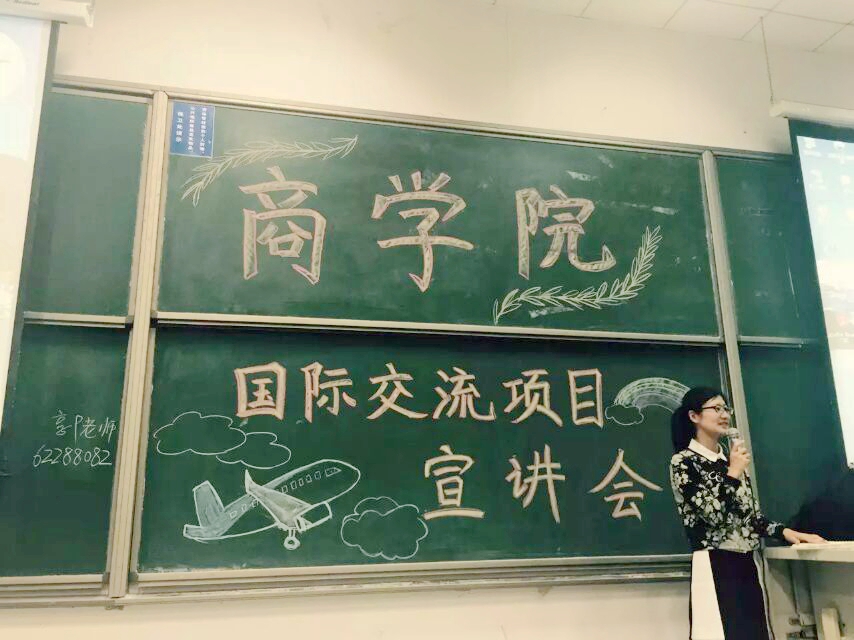 商学院
国际交流项目
宣讲会
郭老师
62288082